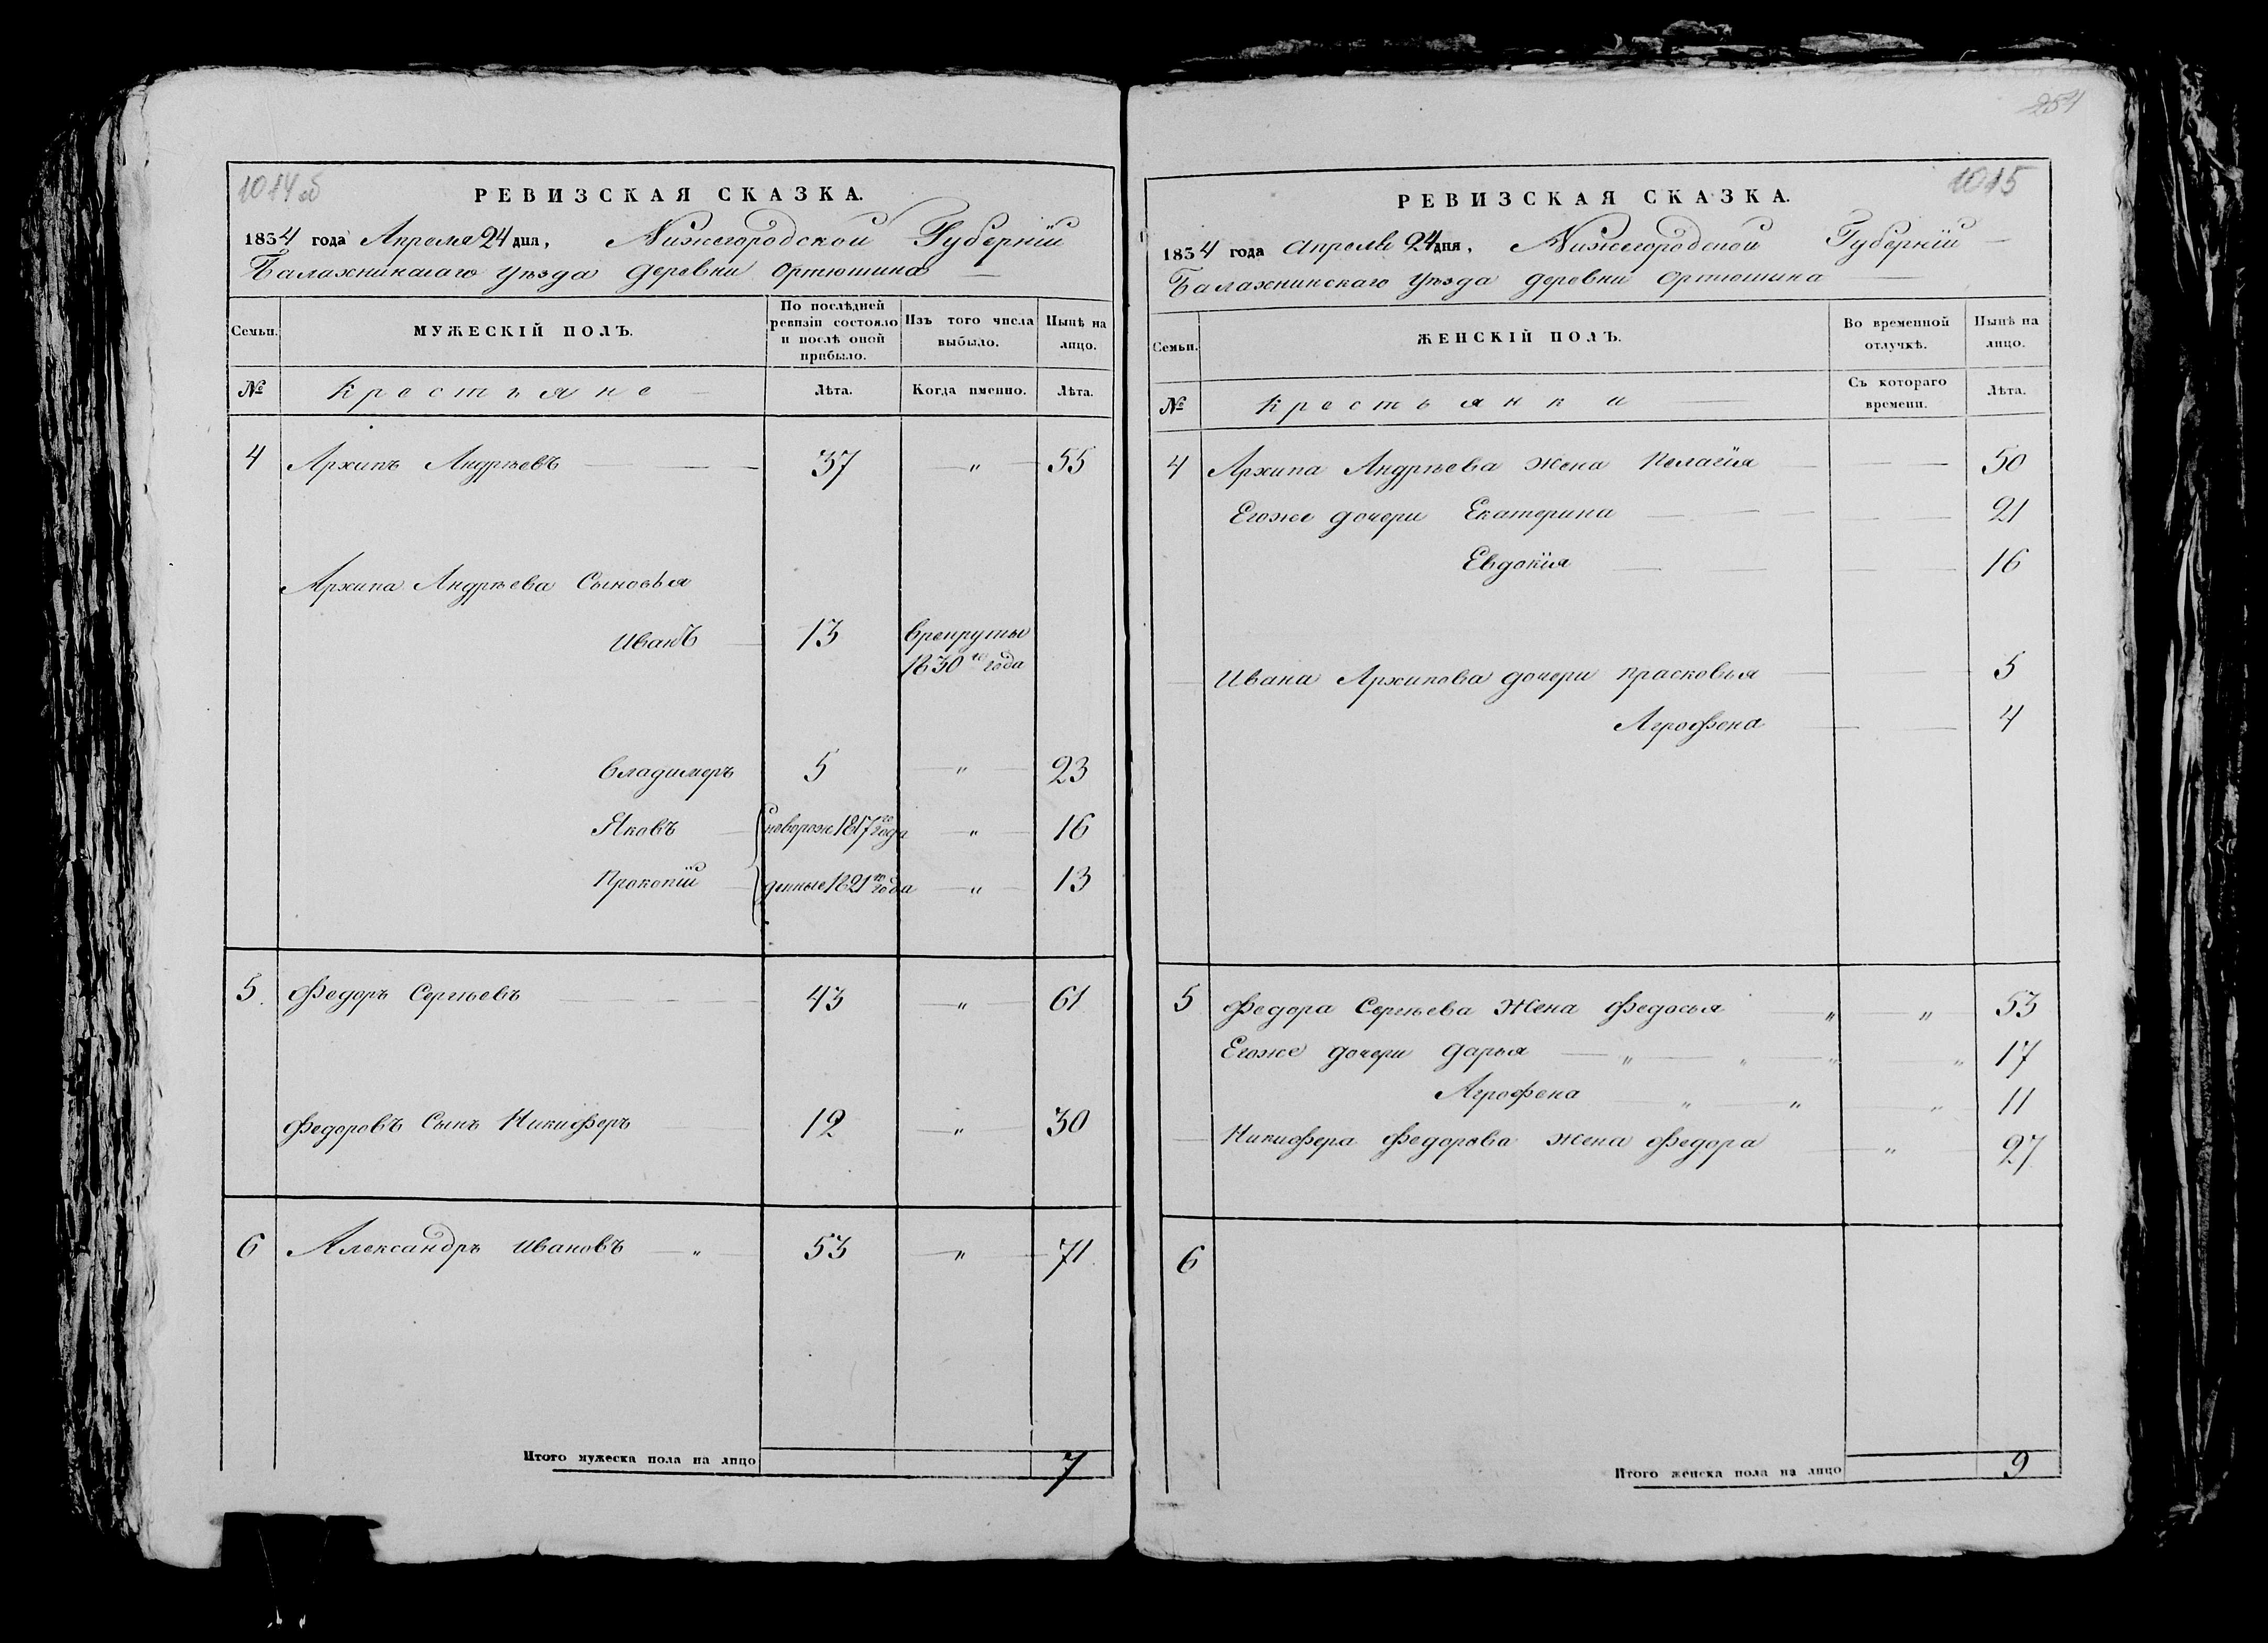 254
1014 об
РЕВИЗСКАЯ СКАЗКА.
1834 года Апреля 24 дня, Нижегородской Губернїи
Балахнинскаго уѣзда деревни Ортюшина
Семьи. МУЖЕСКІЙ ПОЛЪ. По послѣдней ревизіи состояло и послѣ оной прибыло. Изъ того числа выбыло. Нынѣ на лицо.
№ Крестьяне Лѣта. Когда именно. Лѣта.
4 Архипъ Андрѣевъ 37 " 55
Архипа Андрѣева Сыновья
Иванъ 13 Врекруты
1830го года
Владимеръ 5 " 23
Яковъ новорож 1817го года " 16
Прокопїй денные 1821го года " 13
5. Федоръ Сергѣевъ 43 " 61
Федоровъ Сынъ Никифоръ 12 " 30
6 Александръ Ивановъ " 53 " 71
Итого мужеска пола на лицо 7
1015
РЕВИЗСКАЯ СКАЗКА.
1834 года Апреля 24 дня, Нижегородской Губернїи
Балахнинскаго уѣзда деревни Ортюшина
Семьи. ЖЕНСКІЙ ПОЛЪ. Во временной отлучкѣ. Нынѣ на лицо.
№ Крестьянки Съ котораго времени. Лѣта.
4 Архипа Андрѣева жена Пелагїя 50
Егоже дочери Екатерина 21
Евдокїя 16
Ивана Архипова дочери Прасковья 5
Агрофена 4
5 Федора Сергѣева Жена Федосья " " 53
Егоже дочери Дарья " " " " 17
Агрофена " " " 11
Никифера Федорова жена Федора " 27
6
Итого женска пола на лицо 9